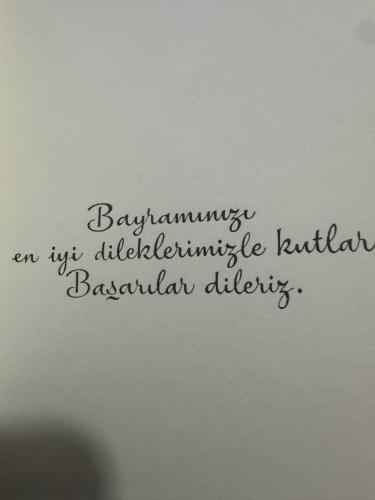 Bayramınızı
en iyi dileklerimizle kutlar
Başarılar dileriz.